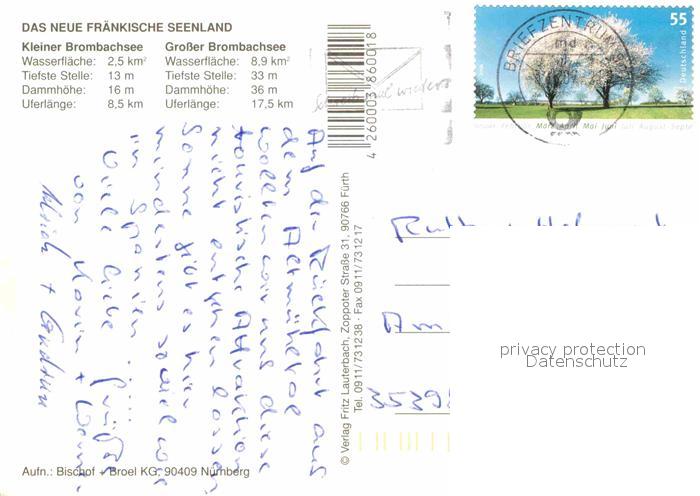 DAS NEUE FRÄNKISCHE SEENLAND
Kleiner Brombachsee
Wasserfläche: 2,5 km²
Tiefste Stelle: 13 m
Dammhöhe: 16 m
Uferlänge: 8,5 km
Großer Brombachsee
Wasserfläche: 8,9 km²
Tiefste Stelle: 33 m
Dammhöhe: 36 m
Uferlänge: 17,5 km
4 260003 860018
wieder
BRIEFZENTRUM
55
Deutschland
März April Mai Juni Juli August Septe
Auf der Rückfahrt aus
dem Altmühltal
wollten wir uns diese
touristische Attraktion
nicht entgehen lassen
Sonne gibt es hier
mindestens soviel wie
in Spanien!
Viele liebe Grüße
von Karin + Werner
Ulrich + Gudrun
© Verlag Fritz Lauterbach, Zoppoter Straße 31, 90766 Fürth
Tel. 0911/731238 · Fax 0911/731217
Ruth
Am
3539
privacy protection
Datenschutz
Aufn.: Bischof + Broel KG, 90409 Nürnberg